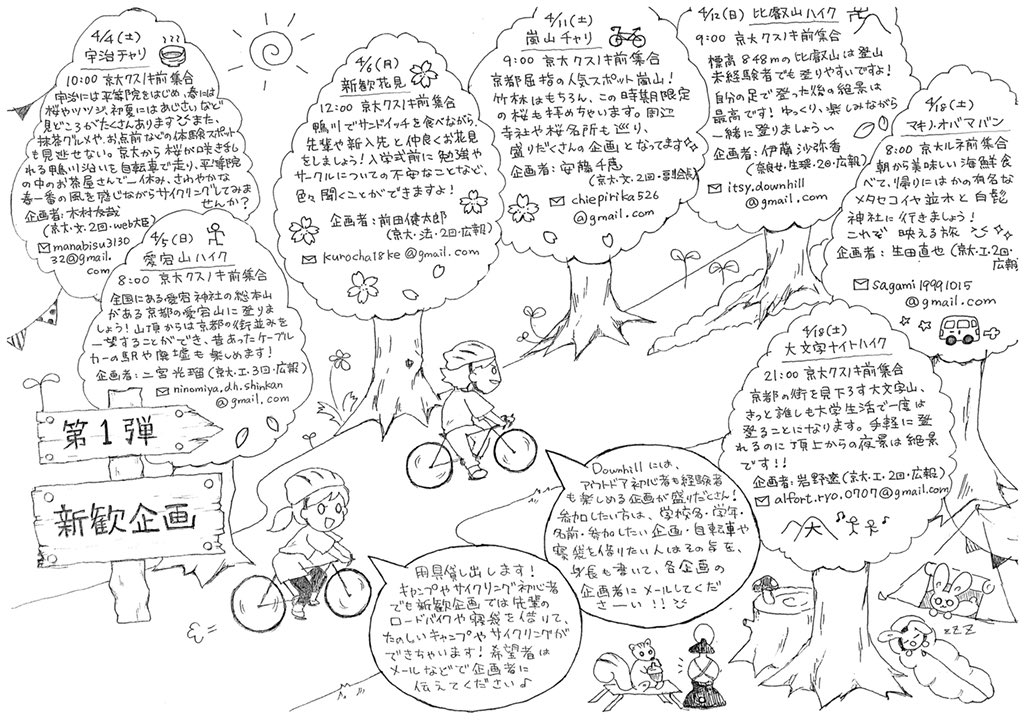 4/4(土)
宇治チャリ
10:00 京大クスノキ前集合
宇治には平等院をはじめ、春には
桜やツツジ、初夏にはあじさいなど
見どころがたくさんあります また、
抹茶グルメや、お点前などの体験スポット
も見逃せない。京大から桜が咲き乱
れる鴨川沿いを自転車で走り、平等院
の中のお茶屋さんで一休み、さわやかな
春一番の風を感じながらサイクリングしてみま
せんか?
企画者:木村友哉
(京大・文・2回・web大臣)
manabisu3130
32@gmail.
com
4/5(日)
愛宕山ハイク
8:00 京大クスノキ前集合
全国にある愛宕神社の総本山
がある京都の愛宕山に登りま
しょう!山頂からは京都の街並みを
一望することができ、昔あったケーブル
カーの駅や廃墟も楽しめます!
企画者:二宮光瑠(京大・工・3回・広報)
ninomiya.dh.shinkan
@gmail.com
4/6(月)
新歓花見
12:00 京大クスノキ前集合
鴨川でサンドイッチを食べながら、
先輩や新入生と仲良くお花見
をしましょう!入学式前に勉強や
サークルについての不安なことなど、
色々聞くことができますよ!
企画者:前田健太郎
(京大・法・2回・広報)
kurocha18ke@gmail.com
4/11(土)
嵐山チャリ
9:00 京大クスノキ前集合
京都屈指の人気スポット嵐山!
竹林はもちろん、この時期限定
の桜も拝めちゃいます。周辺
寺社や桜名所も巡り、
盛りだくさんの企画となってます
企画者:安藤千恵
(京大・文・2回・
chiepirika526
@gmail.com
4/12(日) 比叡山ハイク
9:00 京大クスノキ前集合
標高848mの比叡山は登山
未経験者でも登りやすいですよ!
自分の足で登った後の絶景は
最高です!ゆっくり、楽しみながら
一緒に登りましょう〜
企画者:伊藤沙弥香
(奈良女・生環・2回・広報)
itsy.downhill
@gmail.com
4/18(土)
マキノ・オバマバン
8:00 京大ルネ前集合
朝から美味しい海鮮食
べて、帰りにはかの有名な
メタセコイヤ並木と白髭
神社に行きましょう!
これぞ映える旅
企画者:生田直也(京大・工・2回・
広報)
sagami19991015
@gmail.com
4/18(土)
大文字ナイトハイク
21:00 京大クスノキ前集合
京都の街を見下ろす大文字山、
きっと誰しも大学生活で一度は
登ることになります。手軽に登
れるのに頂上からの夜景は絶景
です!!
企画者:岩野遼(京大・工・2回・広報)
alfort.ryo.0707@gmail.com
大
第1弾
新歓企画
Downhillには、
アウトドア初心者も経験者
も楽しめる企画が盛りだくさん!
参加したい方は、学校名・学年・
名前・参加したい企画・自転車や
寝袋を借りたい人はその旨を、
身長も書いて、各企画の
企画者にメールしてくだ
さーい!!
用具貸し出します!
キャンプやサイクリング初心者
でも新歓企画では先輩の
ロードバイクや寝袋を借りて、
たのしいキャンプやサイクリングが
できちゃいます!希望者は
メールなどで企画者に
伝えてください♪
zzz